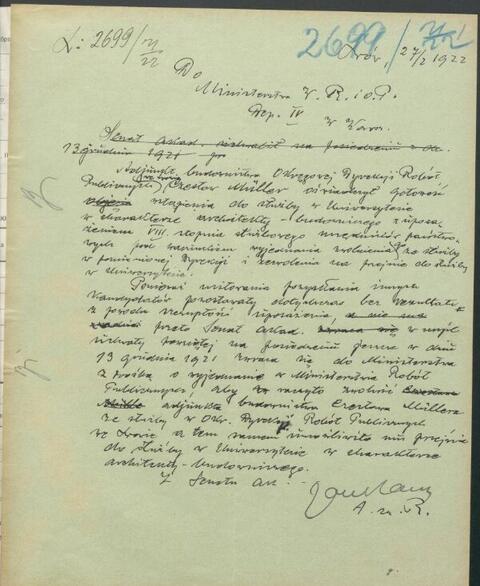 L: 2699/21/22
2699/
Lwów, 27/1 1922
Do
Ministerstwa W. R. i O. P.
Dep. IV
w Warsz.
Senat Akad. uchwalił na posiedzeniu z dn.
13 grudnia 1921
Adjunkt budownictwa Okręgowej Dyrekcji Robót
Publicznych Czesław Müller oświadczył gotowość
objęcia wstąpienia do służby w Uniwersytecie
w charakterze architekty-budowniczego z uposa-
żeniem VIII. stopnia służbowego urzędników państwo-
wych pod warunkiem wyjednania zwolnienia ze służby
w pomienionej Dyrekcji i zezwolenia na przejście do służby
w Uniwersytecie.
Ponieważ usiłowania pozyskania innych
kandydatów pozostawały dotychczas bez rezultatu
z powodu szczupłości uposażenia,
przeto Senat Akad. zwraca się w myśl
uchwały powziętej na posiedzeniu jeszcze w dniu
13 grudnia 1921 zwraca się do Ministerstwa
z prośbą o wyjednanie w Ministerstwie Robót
Publicznych aby raczyło zwolnić Czesława
adjunkta budownictwa Czesława Müllera
ze służby w Okr. Dyrekcji Robót Publicznych
we Lwowie a tem samem umożliwiło mu przejście
do służby w Uniwersytecie w charakterze
architekty-budowniczego.
Z Senatu Ak.